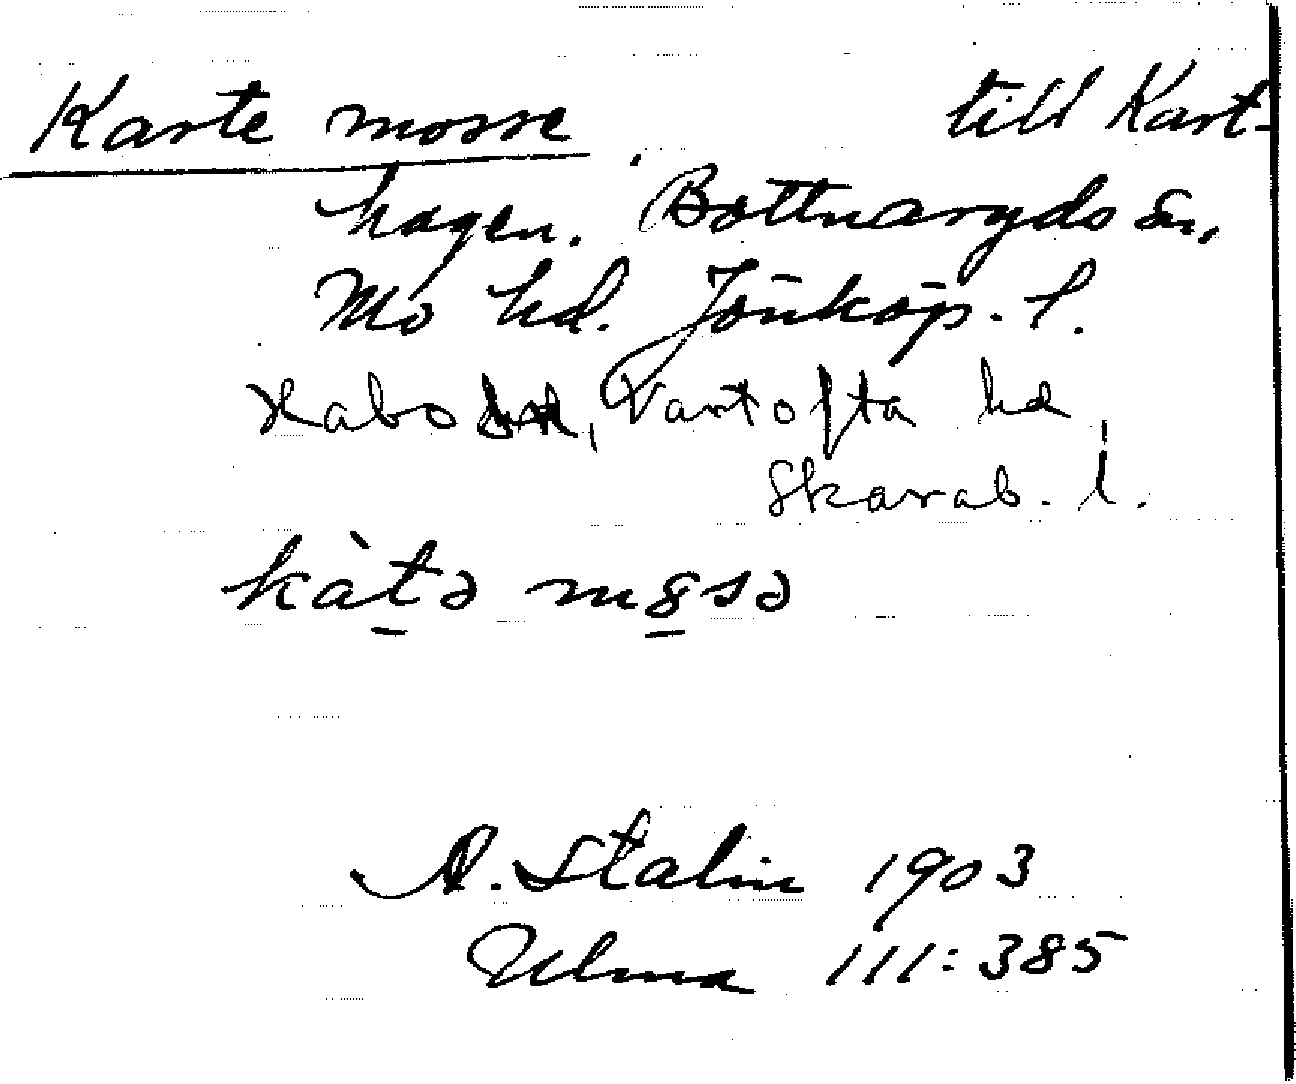 Karte mosse till Kart-
hagen. Bottnaryds sn,
Mo hd. Jönköp. l.
Habo, Vartofta hd,
Skarab. l.
kàtə m8sə
A. Stalin 1903
Ulma 111:385